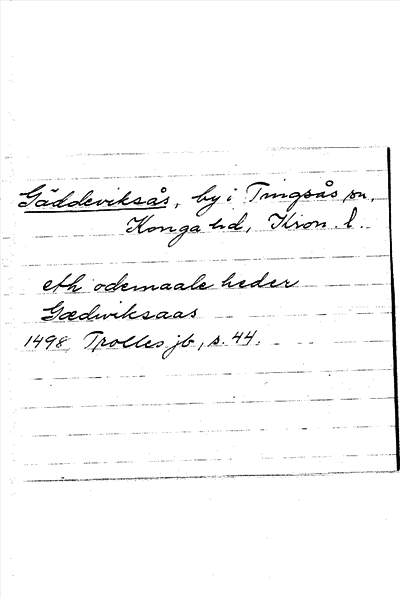 Gäddeviksås, by i Tingsås sn,
Konga hd, Kron. l.
eth ödemaale heder
Gædwiksaas
1498 Trolles jb, s. 44.